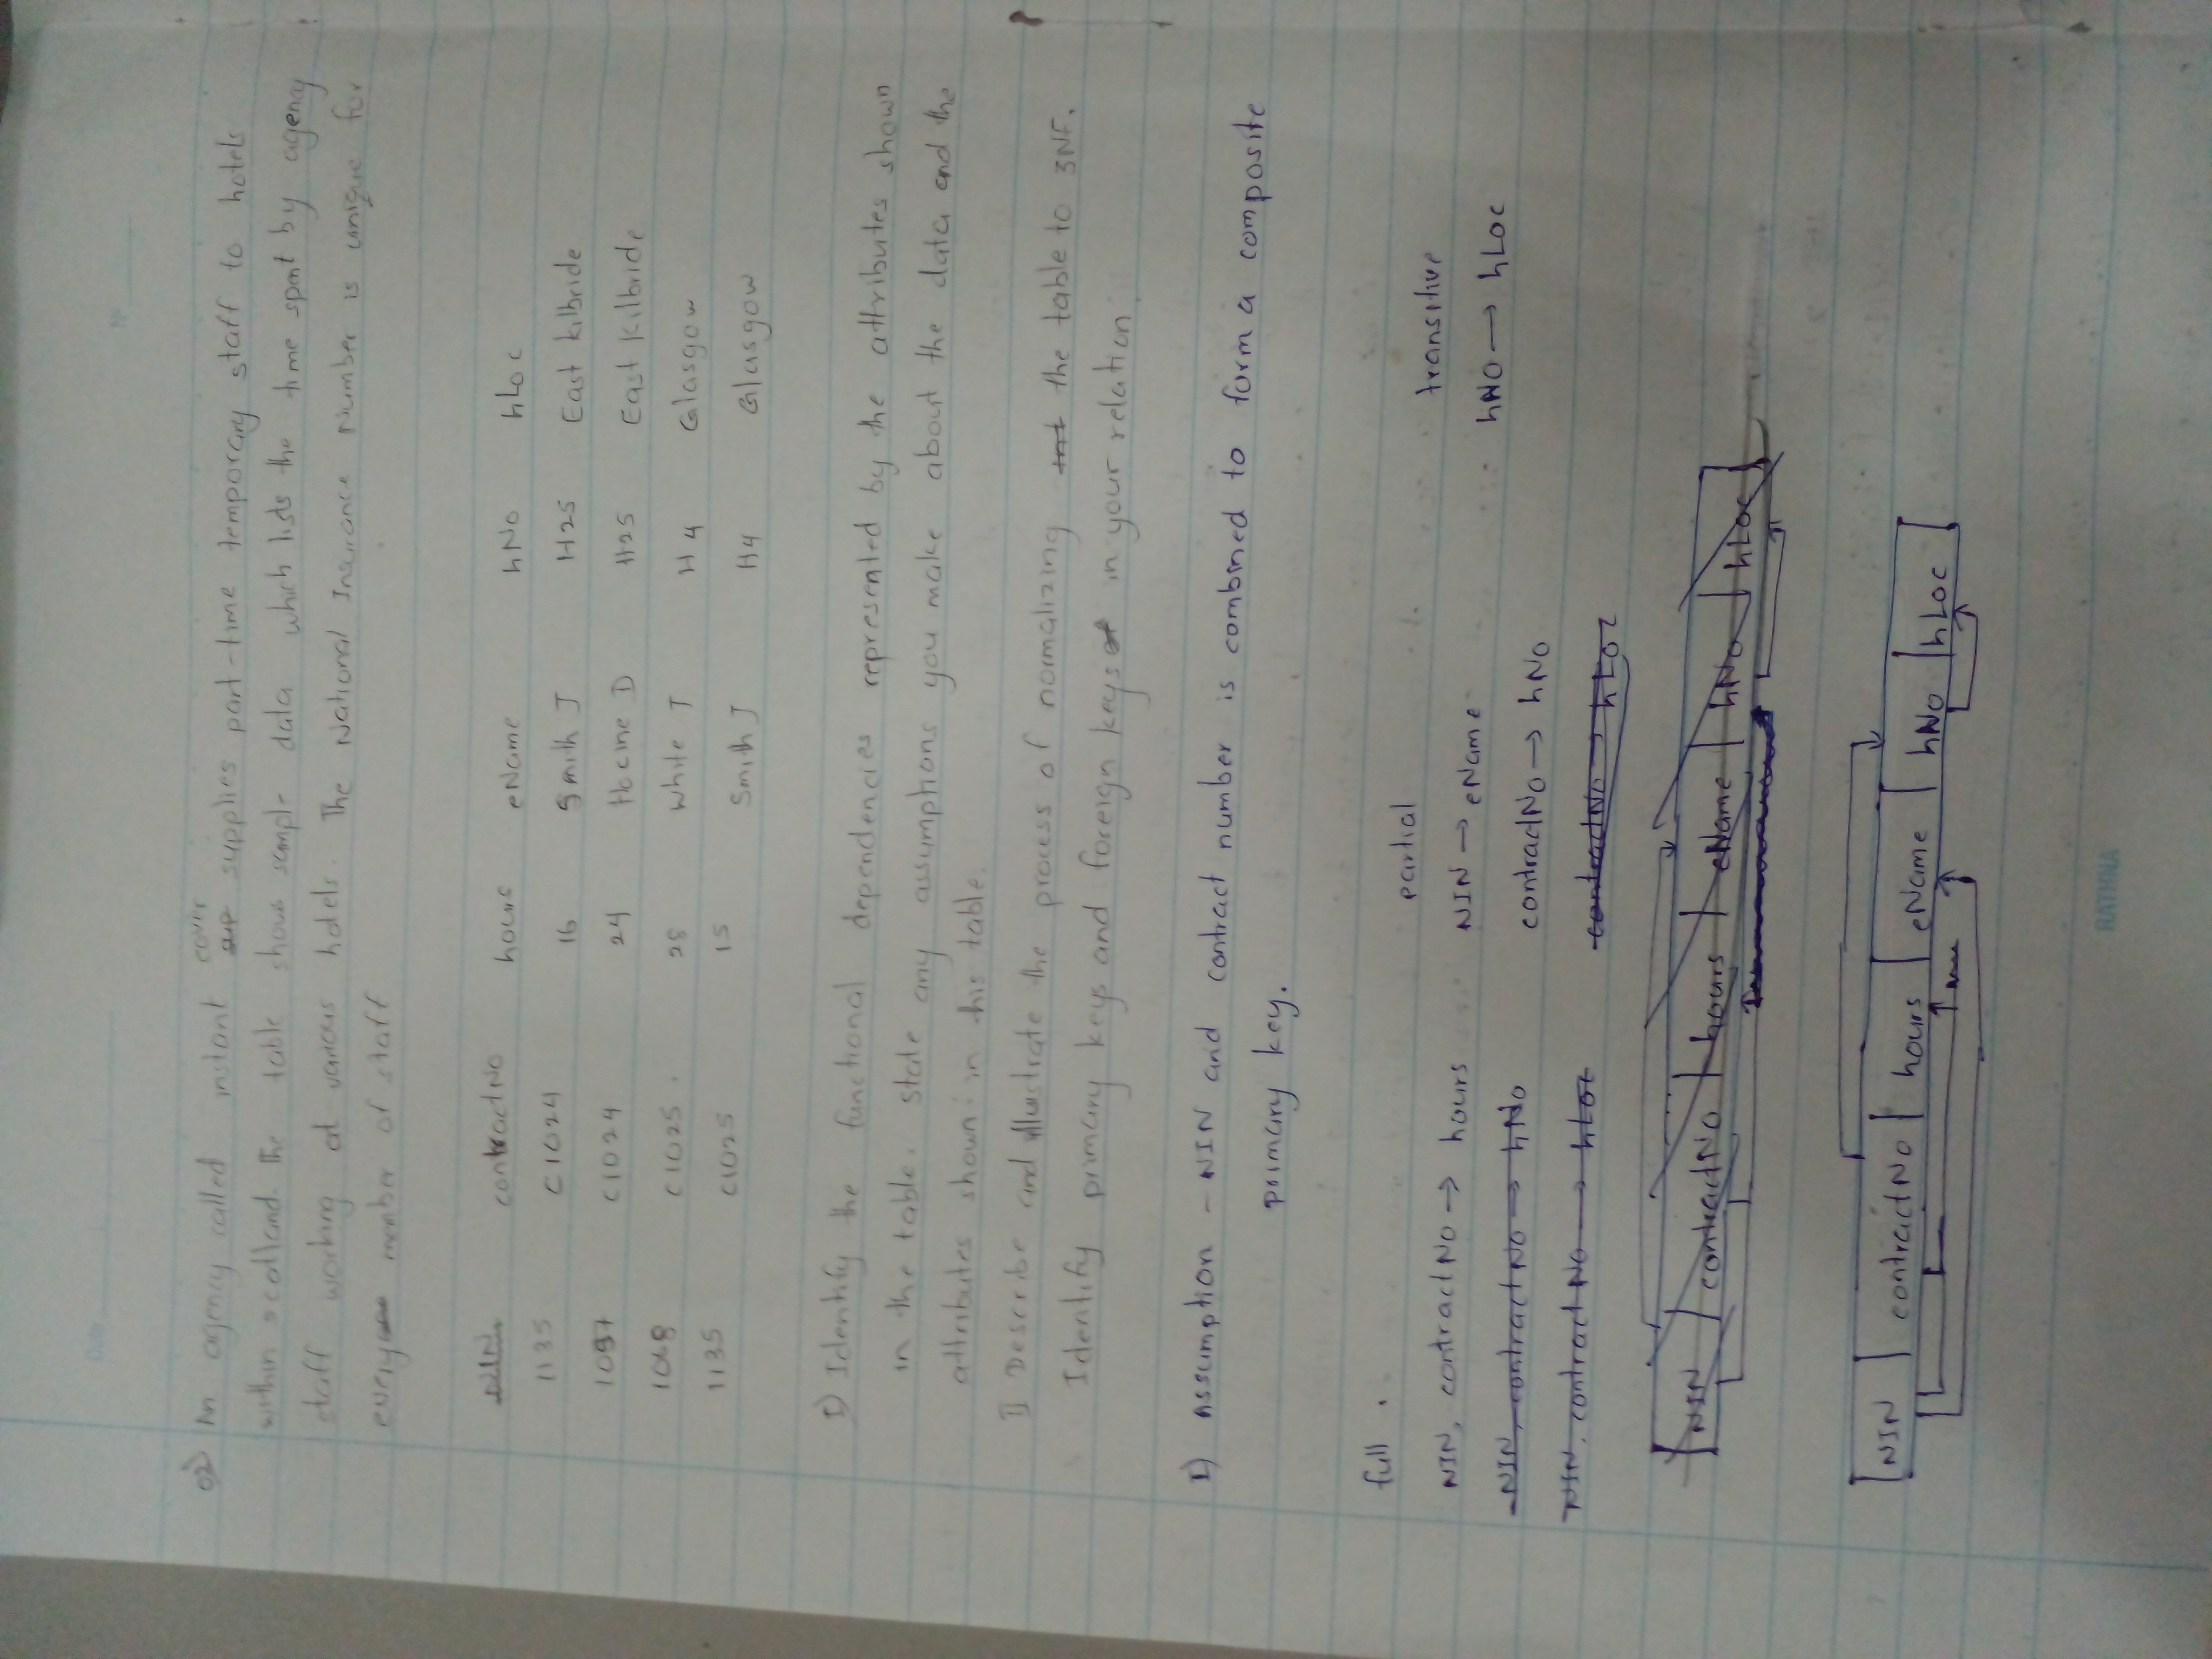 02) An agency called instant cover sup supplies part-time temporary staff to hotels
within scotland. The table shows sample data which lists the time spent by agency
staff working at various hotels. The National Insurance Number is unique for
every member of staff
NIN contractNo hours eName hNo hLoc
1135 C1024 16 Smith J H25 East Kilbride
1057 C1024 24 Hocine D H25 East Kilbride
1068 C1025 28 White T H4 Glasgow
1135 C1025 15 Smith J H4 Glasgow
I) Identify the functional dependencies represented by the attributes shown
in the table. state any assumptions you make about the data and the
attributes shown in this table.
II Describe and illustrate the process of normalizing the table to 3NF.
Identify primary keys and foreign keys in your relation.
I) Assumption - NIN and contract number is combined to form a composite
primary key.
full partial transitive
NIN, contractNo → hours NIN → eName hNo → hLoc
NIN, contractNo → hNo contractNo → hNo
NIN, contractNo → hLoc contractNo → hLoc
NIN contractNo hours eName hNo hLoc
NIN contractNo hours eName hNo hLoc
RATHNA